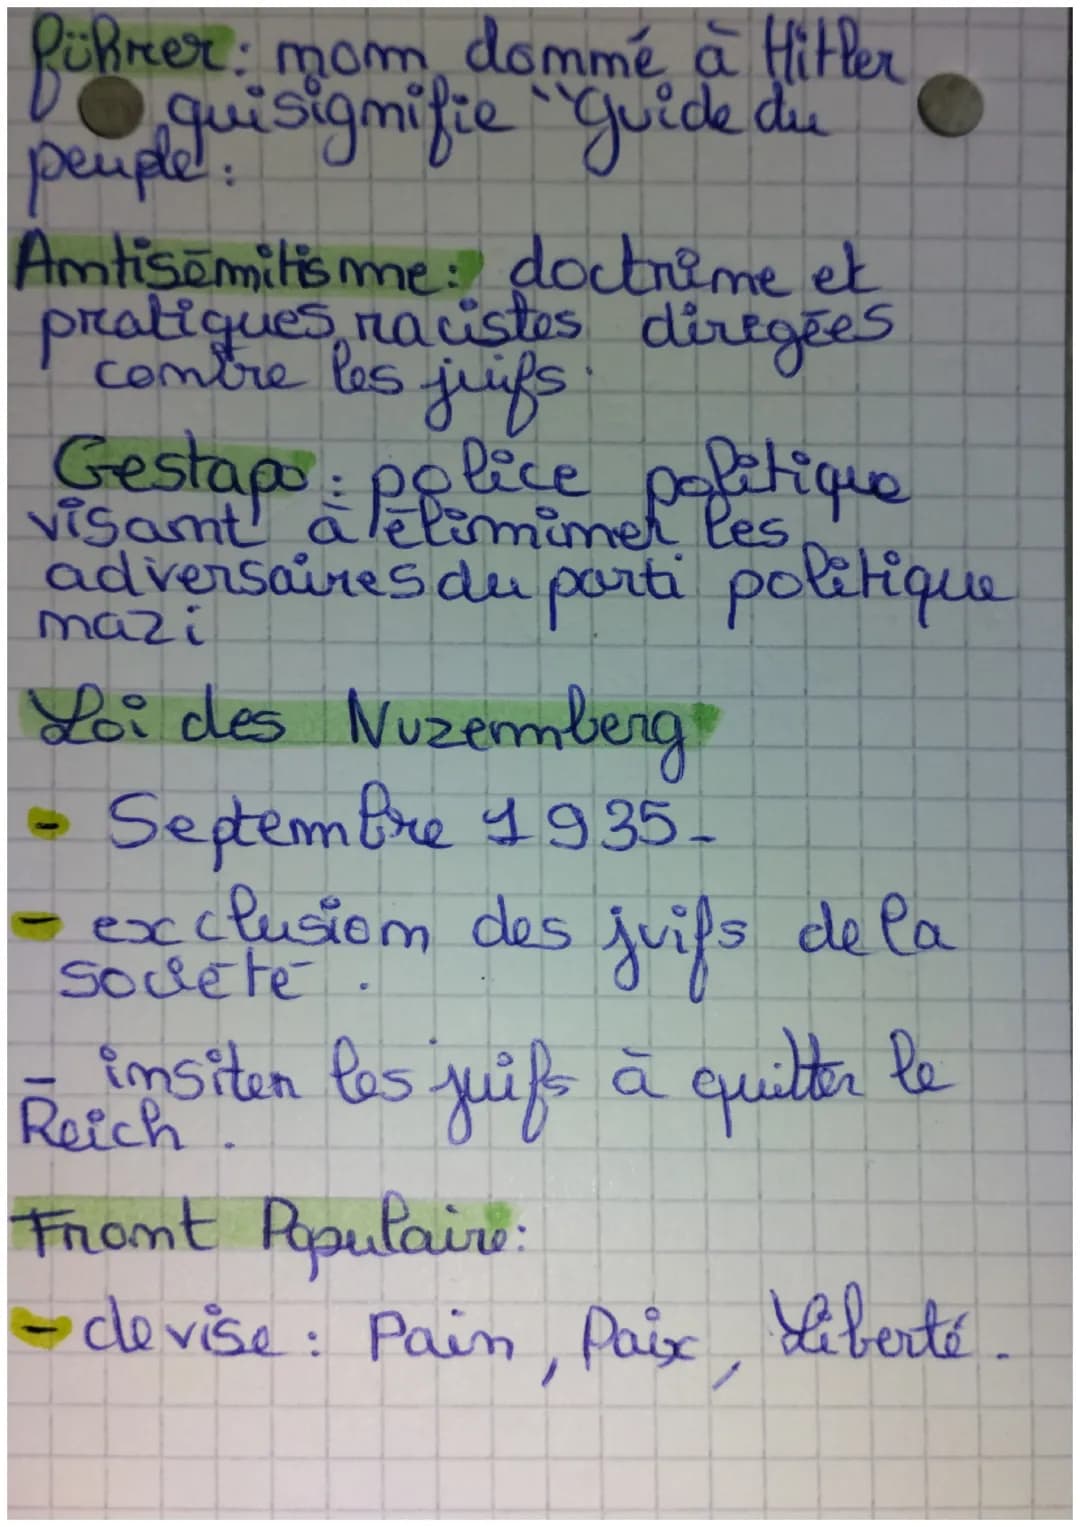 Führer : nom donné à Hitler
qui signifie "Guide du
peuple.
Antisémitisme : doctrine et
pratiques racistes dirigées
contre les juifs.
Gestapo : police politique
visant à éliminer les
adversaires du parti politique
nazi
Loi des Nuzemmberg
- Septembre 1935-
- exclusion des juifs de la
societé.
- insiter les juifs à quitter le
Reich.
Front Populaire :
- devise : Pain, Paix, Liberté.